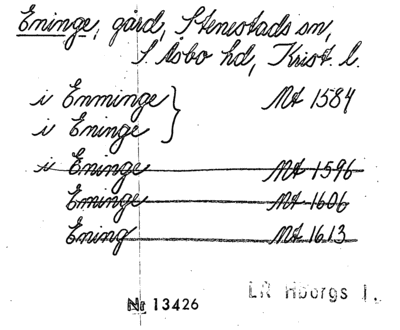 Eninge, gård, Stenestads sn,
S. Åsbo hd, Krist. l.
i Enminge } Mt 1584
i Eninge
i Eninge Mt 1596
Eminge Mt 1606
Ening Mt 1613
LR Hborgs l.
Nr 13426